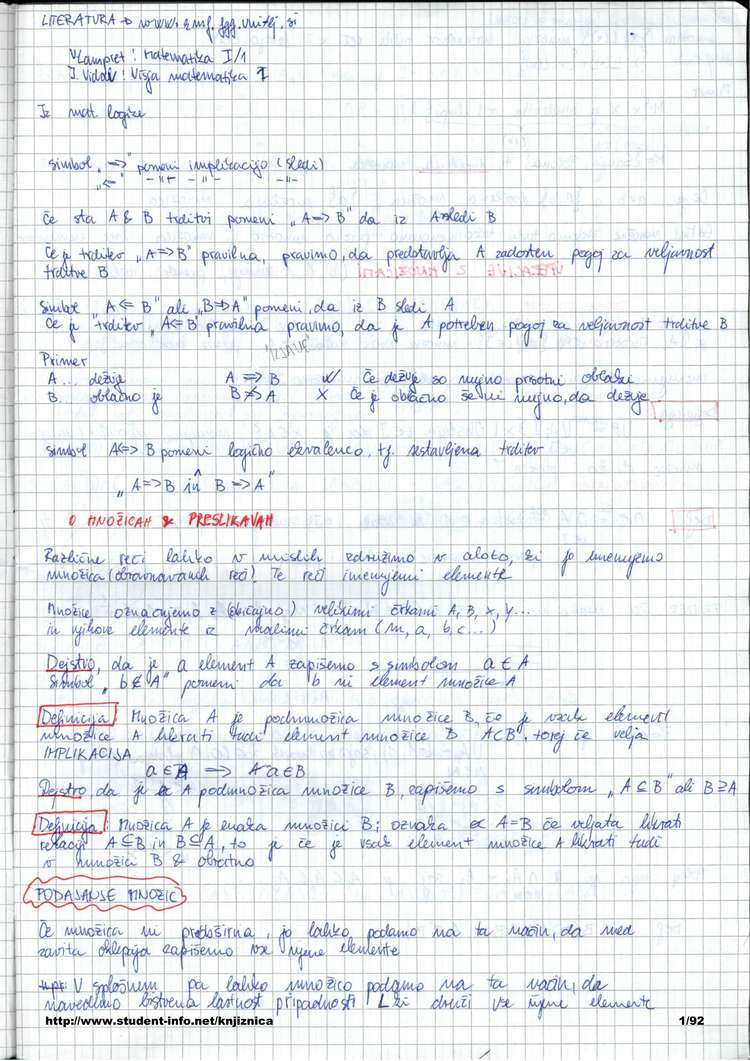 LITERATURA → www.kmf.fgg.uni-lj.si
Lampret: Matematika I/1
I. Vidav: Višja matematika I
Iz mat. logike
simbol „=>" pomeni implikacijo (sledi)
„<=" -„- -„- -„-
Če sta A & B trditvi pomeni „A=>B" da iz A sledi B
Če je trditev „A=>B" pravilna, pravimo, da predstavlja A zadosten pogoj za veljavnost
trditve B
Simbol „A<=B" ali „B=>A" pomeni, da iz B sledi A
Če je trditev „A<=B" pravilna pravimo, da je A potreben pogoj za veljavnost trditve B
"IZJAVE"
Primer
A... dežuje A => B Če dežuje so nujno prisotni oblaki
B.. oblačno je B ≠> A X Če je oblačno še ni nujno, da dežuje
simbol A<=>B pomeni logično ekvivalenco, tj. sestavljena trditev
„A=>B in B=>A"
^
O MNOŽICAH & PRESLIKAVAH
Različne reči lahko v mislih združimo v celoto, ki jo imenujemo
množica (obravnavanih reči). Te reči imenujemo elemente
Množice označujemo z (običajno) velikimi črkami A, B, X, Y...
in njihove elemente z malimi črkam (m, a, b, c...)
Dejstvo, da je a element A zapišemo s simbolom a ∈ A
Simbol „b ∉ A" pomeni da b ni element množice A
Definicija Množica A je podmnožica množice B, če je vsak element
množice A hkrati tudi element množice B A⊂B, torej če velja
IMPLIKACIJA
a ∈ A => a ∈ B
Dejstvo da je A podmnožica množice B, zapišemo s simbolom „A ⊆ B" ali B ⊇ A
Definicija: Množica A je enaka množici B; oznaka A=B če veljata hkrati
relaciji A⊆B in B⊆A, to je če je vsak element množice A hkrati tudi
v množici B & obratno
PODAJANJE MNOŽIC
Če množica ni preobširna, jo lahko podamo na ta način, da med
zavita oklepaja zapišemo vse njene elemente
V splošnem pa lahko množico podamo na ta način, da
navedemo bistveno lastnost pripadnosti L ki druži vse njene elemente
http://www.student-info.net/knjiznica 1/92